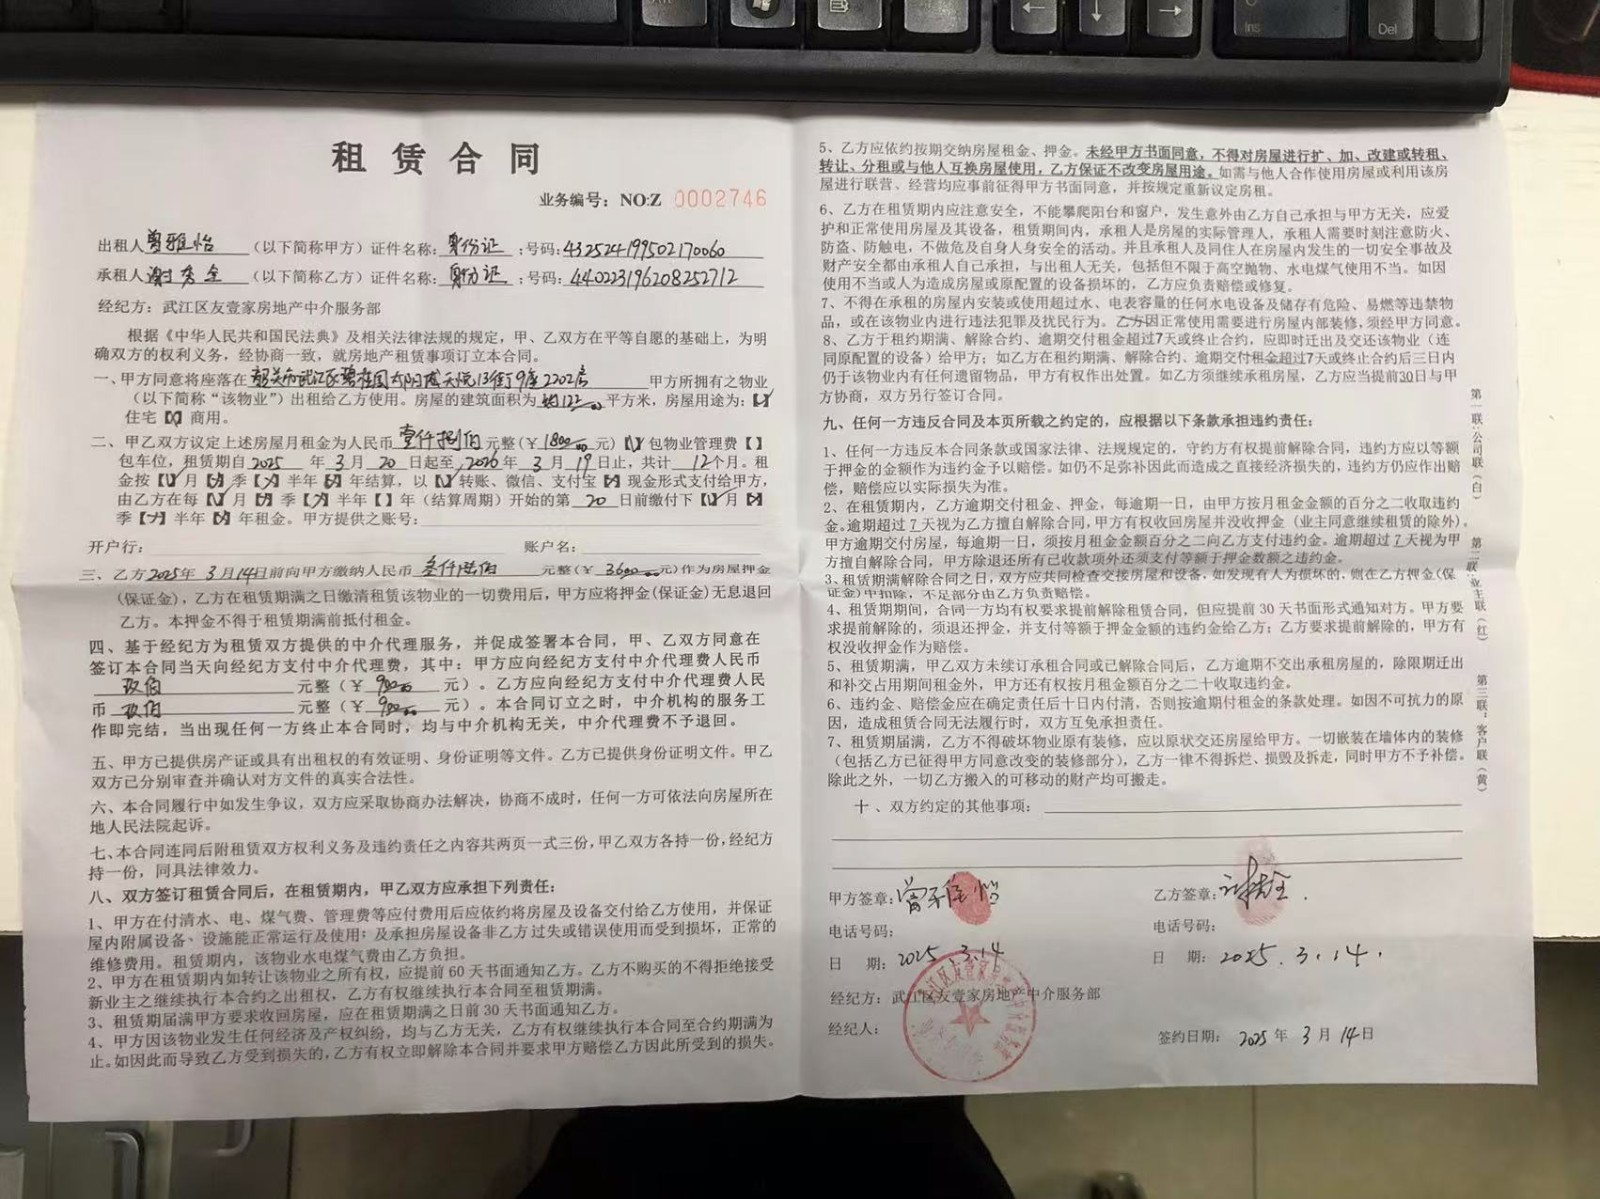 Ins
Del
租赁合同
业务编号：NO:Z 0002746
出租人曾雅怡（以下简称甲方）证件名称：身份证；号码：432524199502170060
承租人谢 全（以下简称乙方）证件名称：身份证；号码：440223196208252712
经纪方：武江区友壹家房地产中介服务部
根据《中华人民共和国民法典》及相关法律法规的规定，甲、乙双方在平等自愿的基础上，为明
确双方的权利义务，经协商一致，就房地产租赁事项订立本合同。
一、甲方同意将座落在韶关市武江区碧桂园太阳城天悦13街9座2202房 甲方所拥有之物业
（以下简称“该物业”）出租给乙方使用。房屋的建筑面积为 约122 平方米，房屋用途为：【√】
住宅【×】商用。
二、甲乙双方议定上述房屋月租金为人民币 壹仟捌佰 元整（￥1800.00元）【√】包物业管理费【 】
包车位，租赁期自2025 年 3 月 20 日起至2026年 3 月 19日止，共计 12个月。租
金按【√】月【×】季【×】半年【×】年结算，以【√】转账、微信、支付宝【×】现金形式支付给甲方，
由乙方在每【√】月【×】季【×】半年【 】年（结算周期）开始的第 20 日前缴付下【√】月【×】
季【×】半年【×】年租金。甲方提供之账号：
开户行： 账户名：
三、乙方2025年 3月14日前向甲方缴纳人民币 叁仟陆佰 元整（￥ 3600.00元）作为房屋押金
(保证金)，乙方在租赁期满之日缴清租赁该物业的一切费用后，甲方应将押金(保证金)无息退回
乙方。本押金不得于租赁期满前抵付租金。
四、基于经纪方为租赁双方提供的中介代理服务，并促成签署本合同，甲、乙双方同意在
签订本合同当天向经纪方支付中介代理费，其中：甲方应向经纪方支付中介代理费人民币
玖佰 元整（￥ 900.00 元）。乙方应向经纪方支付中介代理费人民
币 玖佰 元整（￥ 900.00 元）。本合同订立之时，中介机构的服务工
作即完结，当出现任何一方终止本合同时，均与中介机构无关，中介代理费不予退回。
五、甲方已提供房产证或具有出租权的有效证明、身份证明等文件。乙方已提供身份证明文件。甲乙
双方已分别审查并确认对方文件的真实合法性。
六、本合同履行中如发生争议，双方应采取协商办法解决，协商不成时，任何一方可依法向房屋所在
地人民法院起诉。
七、本合同连同后附租赁双方权利义务及违约责任之内容共两页一式三份，甲乙双方各持一份，经纪方
持一份，同具法律效力。
八、双方签订租赁合同后，在租赁期内，甲乙双方应承担下列责任：
1、甲方在付清水、电、煤气费、管理费等应付费用后应依约将房屋及设备交付给乙方使用，并保证
屋内附属设备、设施能正常运行及使用；及承担房屋设备非乙方过失或错误使用而受到损坏，正常的
维修费用。租赁期内，该物业水电煤气费由乙方负担。
2、甲方在租赁期内如转让该物业之所有权，应提前60天书面通知乙方。乙方不购买的不得拒绝接受
新业主之继续执行本合约之出租权，乙方有权继续执行本合同至租赁期满。
3、租赁期届满甲方要求收回房屋，应在租赁期满之日前30天书面通知乙方。
4、甲方因该物业发生任何经济及产权纠纷，均与乙方无关，乙方有权继续执行本合同至合约期满为
止。如因此而导致乙方受到损失的，乙方有权立即解除本合同并要求甲方赔偿乙方因此所受到的损失。
5、乙方应依约按期交纳房屋租金、押金。未经甲方书面同意，不得对房屋进行扩、加、改建或转租、
转让、分租或与他人互换房屋使用，乙方保证不改变房屋用途。如需与他人合作使用房屋或利用该房
屋进行联营、经营均应事前征得甲方书面同意，并按规定重新议定房租。
6、乙方在租赁期内应注意安全，不能攀爬阳台和窗户，发生意外由乙方自己承担与甲方无关，应爱
护和正常使用房屋及其设备，租赁期间内，承租人是房屋的实际管理人，承租人需要时刻注意防火、
防盗、防触电，不做危及自身人身安全的活动。并且承租人及同住人在房屋内发生的一切安全事故及
财产安全都由承租人自己承担，与出租人无关，包括但不限于高空抛物、水电煤气使用不当。如因
使用不当或人为造成房屋或原配置的设备损坏的，乙方应负责赔偿或修复。
7、不得在承租的房屋内安装或使用超过水、电表容量的任何水电设备及储存有危险、易燃等违禁物
品，或在该物业内进行违法犯罪及扰民行为。乙方因正常使用需要进行房屋内部装修，须经甲方同意。
8、乙方于租约期满、解除合约、逾期交付租金超过7天或终止合约，应即时迁出及交还该物业（连
同原配置的设备）给甲方；如乙方在租约期满、解除合约、逾期交付租金超过7天或终止合约后三日内
仍于该物业内有任何遗留物品，甲方有权作出处置。如乙方须继续承租房屋，乙方应当提前30日与甲
方协商，双方另行签订合同。
九、任何一方违反合同及本页所载之约定的，应根据以下条款承担违约责任：
1、任何一方违反本合同条款或国家法律、法规规定的，守约方有权提前解除合同，违约方应以等额
于押金的金额作为违约金予以赔偿。如仍不足弥补因此而造成之直接经济损失的，违约方仍应作出赔
偿，赔偿应以实际损失为准。
2、在租赁期内，乙方逾期交付租金、押金，每逾期一日，由甲方按月租金金额的百分之二收取违约
金。逾期超过 7 天视为乙方擅自解除合同，甲方有权收回房屋并没收押金（业主同意继续租赁的除外）。
甲方逾期交付房屋，每逾期一日，须按月租金金额百分之二向乙方支付违约金。逾期超过 7 天视为甲
方擅自解除合同，甲方除退还所有已收款项外还须支付等额于押金数额之违约金。
3、租赁期满解除合同之日，双方应共同检查交接房屋和设备，如发现有人为损坏的，则在乙方押金(保
证金)中扣除，不足部分由乙方负责赔偿。
4、租赁期期间，合同一方均有权要求提前解除租赁合同，但应提前30天书面形式通知对方。甲方要
求提前解除的，须退还押金，并支付等额于押金金额的违约金给乙方；乙方要求提前解除的，甲方有
权没收押金作为赔偿。
5、租赁期满，甲乙双方未续订承租合同或已解除合同后，乙方逾期不交出承租房屋的，除限期迁出
和补交占用期间租金外，甲方还有权按月租金额百分之二十收取违约金。
6、违约金、赔偿金应在确定责任后十日内付清，否则按逾期付租金的条款处理。如因不可抗力的原
因，造成租赁合同无法履行时，双方互免承担责任。
7、租赁期届满，乙方不得破坏物业原有装修，应以原状交还房屋给甲方。一切嵌装在墙体内的装修
（包括乙方已征得甲方同意改变的装修部分），乙方一律不得拆烂、损毁及拆走，同时甲方不予补偿。
除此之外，一切乙方搬入的可移动的财产均可搬走。
十、双方约定的其他事项：
甲方签章：曾雅怡
电话号码：
日 期：2025.3.14
经纪方：武江区友壹家房地产中介服务部
经纪人：
乙方签章：
电话号码：
日 期：2025.3.14.
签约日期：2025年 3月 14日
第一联：公司联（白）
第二联：业主联（红）
第三联：客户联（黄）